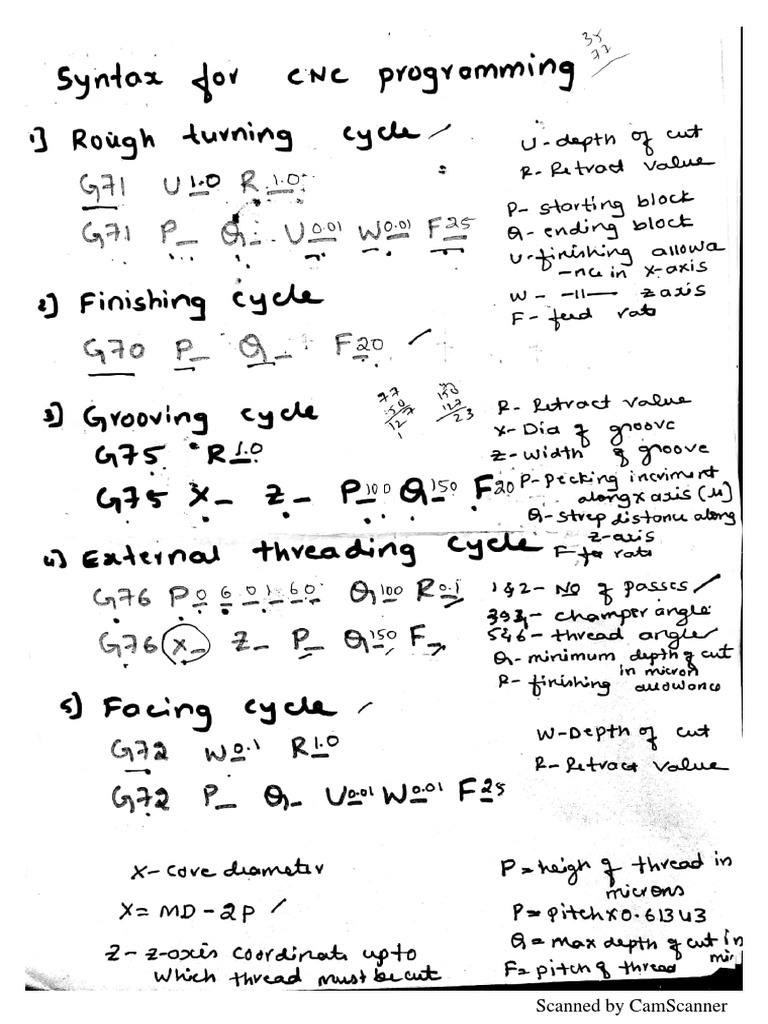 Syntax for CNC programming
38
72
1] Rough turning cycle
G71 U 1.0 R 1.0
G71 P_ Q_ U 0.01 W 0.01 F 25
U - depth of cut
R - Retract value
P - starting block
Q - ending block
U - finishing allowa
-nce in X-axis
W - -11- z axis
F - feed rate
2] Finishing cycle
G70 P_ Q_ F 20
3] Grooving cycle
G75 R 1.0
G75 X_ Z_ P 100 Q 150 F 20
77
50
127
1
150
127
23
R - Retract value
X - Dia of groove
Z - width of groove
P - pecking incriment
along x axis (μ)
Q - strep distance along
z-axis
F - rate
4] External threading cycle
G76 P 0 6 0 1 60 Q 100 R 0.1
G76 X_ Z_ P_ Q 150 F_
1&2 - No of passes
3&4 - champer angle
5&6 - thread angle
Q - minimum depth of cut
in micron
R - finishing allowance
5] Facing cycle
G72 W 0.1 R 1.0
G72 P_ Q_ U 0.01 W 0.01 F 25
W - Depth of cut
R - Retract value
X - core diameter
X = MD - 2P
Z - z-axis coordinate upto
which thread must be cut
P = heigh of thread in
microns
P = pitch x 0.61343
Q = max depth of cut in
mi
F = pitch of thread
Scanned by CamScanner